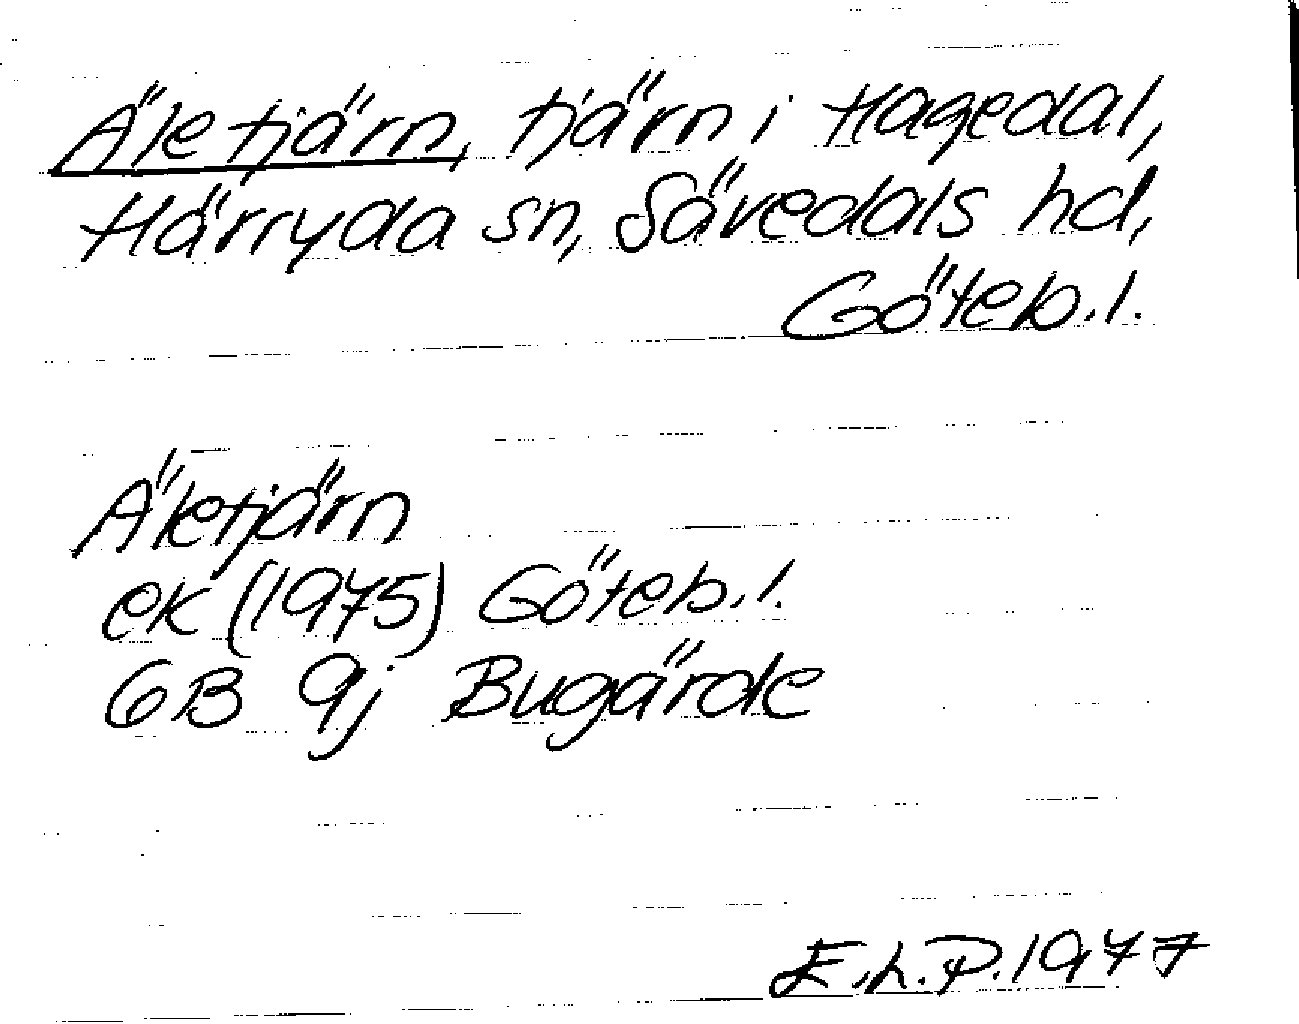 Äletjärn, tjärn i Hagedal,
Härryda sn, Sävedals hd,
Göteb.l.
Äletjärn
ek (1975) Göteb.l.
6B 9j Bugärde
E.L.P. 1977